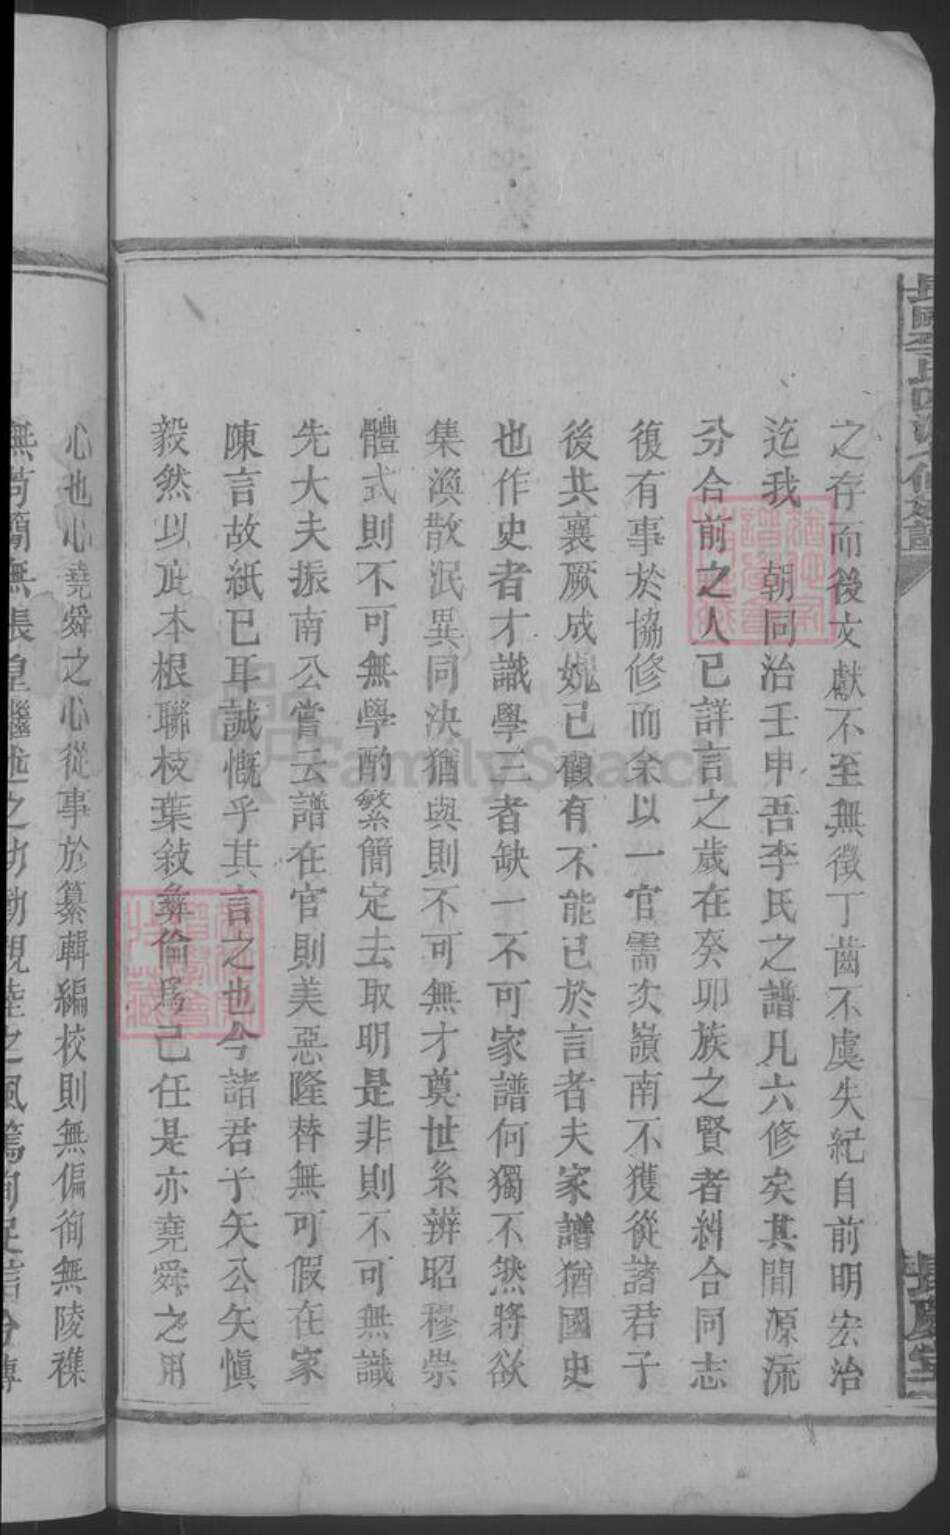 之存而後文獻不至無徵丁齒不虞失紀自前明宏治
迄我 朝同治壬申吾李氏之譜凡六修矣其間源流
分合前之人已詳言之歲在癸卯族之賢者糾合同志
復有事於協修而余以一官需次嶺南不獲從諸君子
後共襄厥成媿已顧有不能已於言者夫家譜猶國史
也作史者才識學三者缺一不可家譜何獨不然將欲
集渙散泯異同決猶與則不可無才奠世系辨昭穆崇
體式則不可無學酌繁簡定去取明是非則不可無識
先大夫振南公嘗云譜在官則美惡隆替無可假在家
陳言故紙已耳誠慨乎其言之也今諸君子矢公矢愼
毅然以庇本根聯枝葉敍彝倫爲己任是亦堯舜之用
心也心堯舜之心從事於纂輯編校則無偏徇無陵襍
FamilySearch